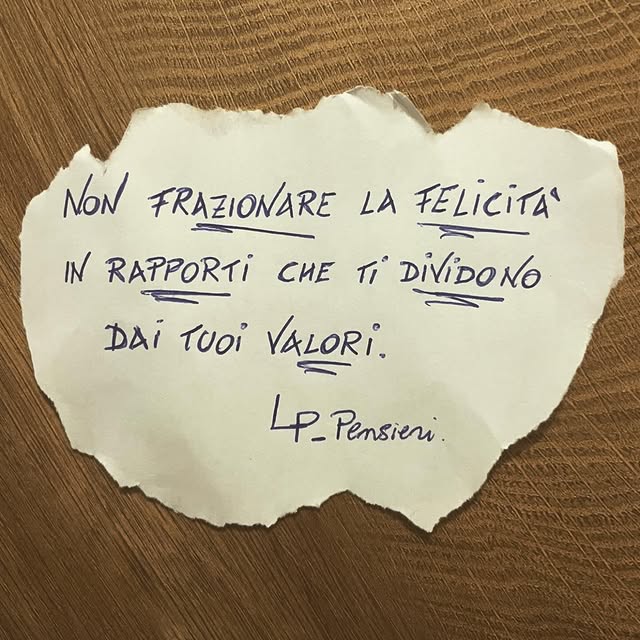 NON FRAZIONARE LA FELICITA'
IN RAPPORTI CHE TI DIVIDONO
DAI TUOI VALORI.
LP_Pensieri.